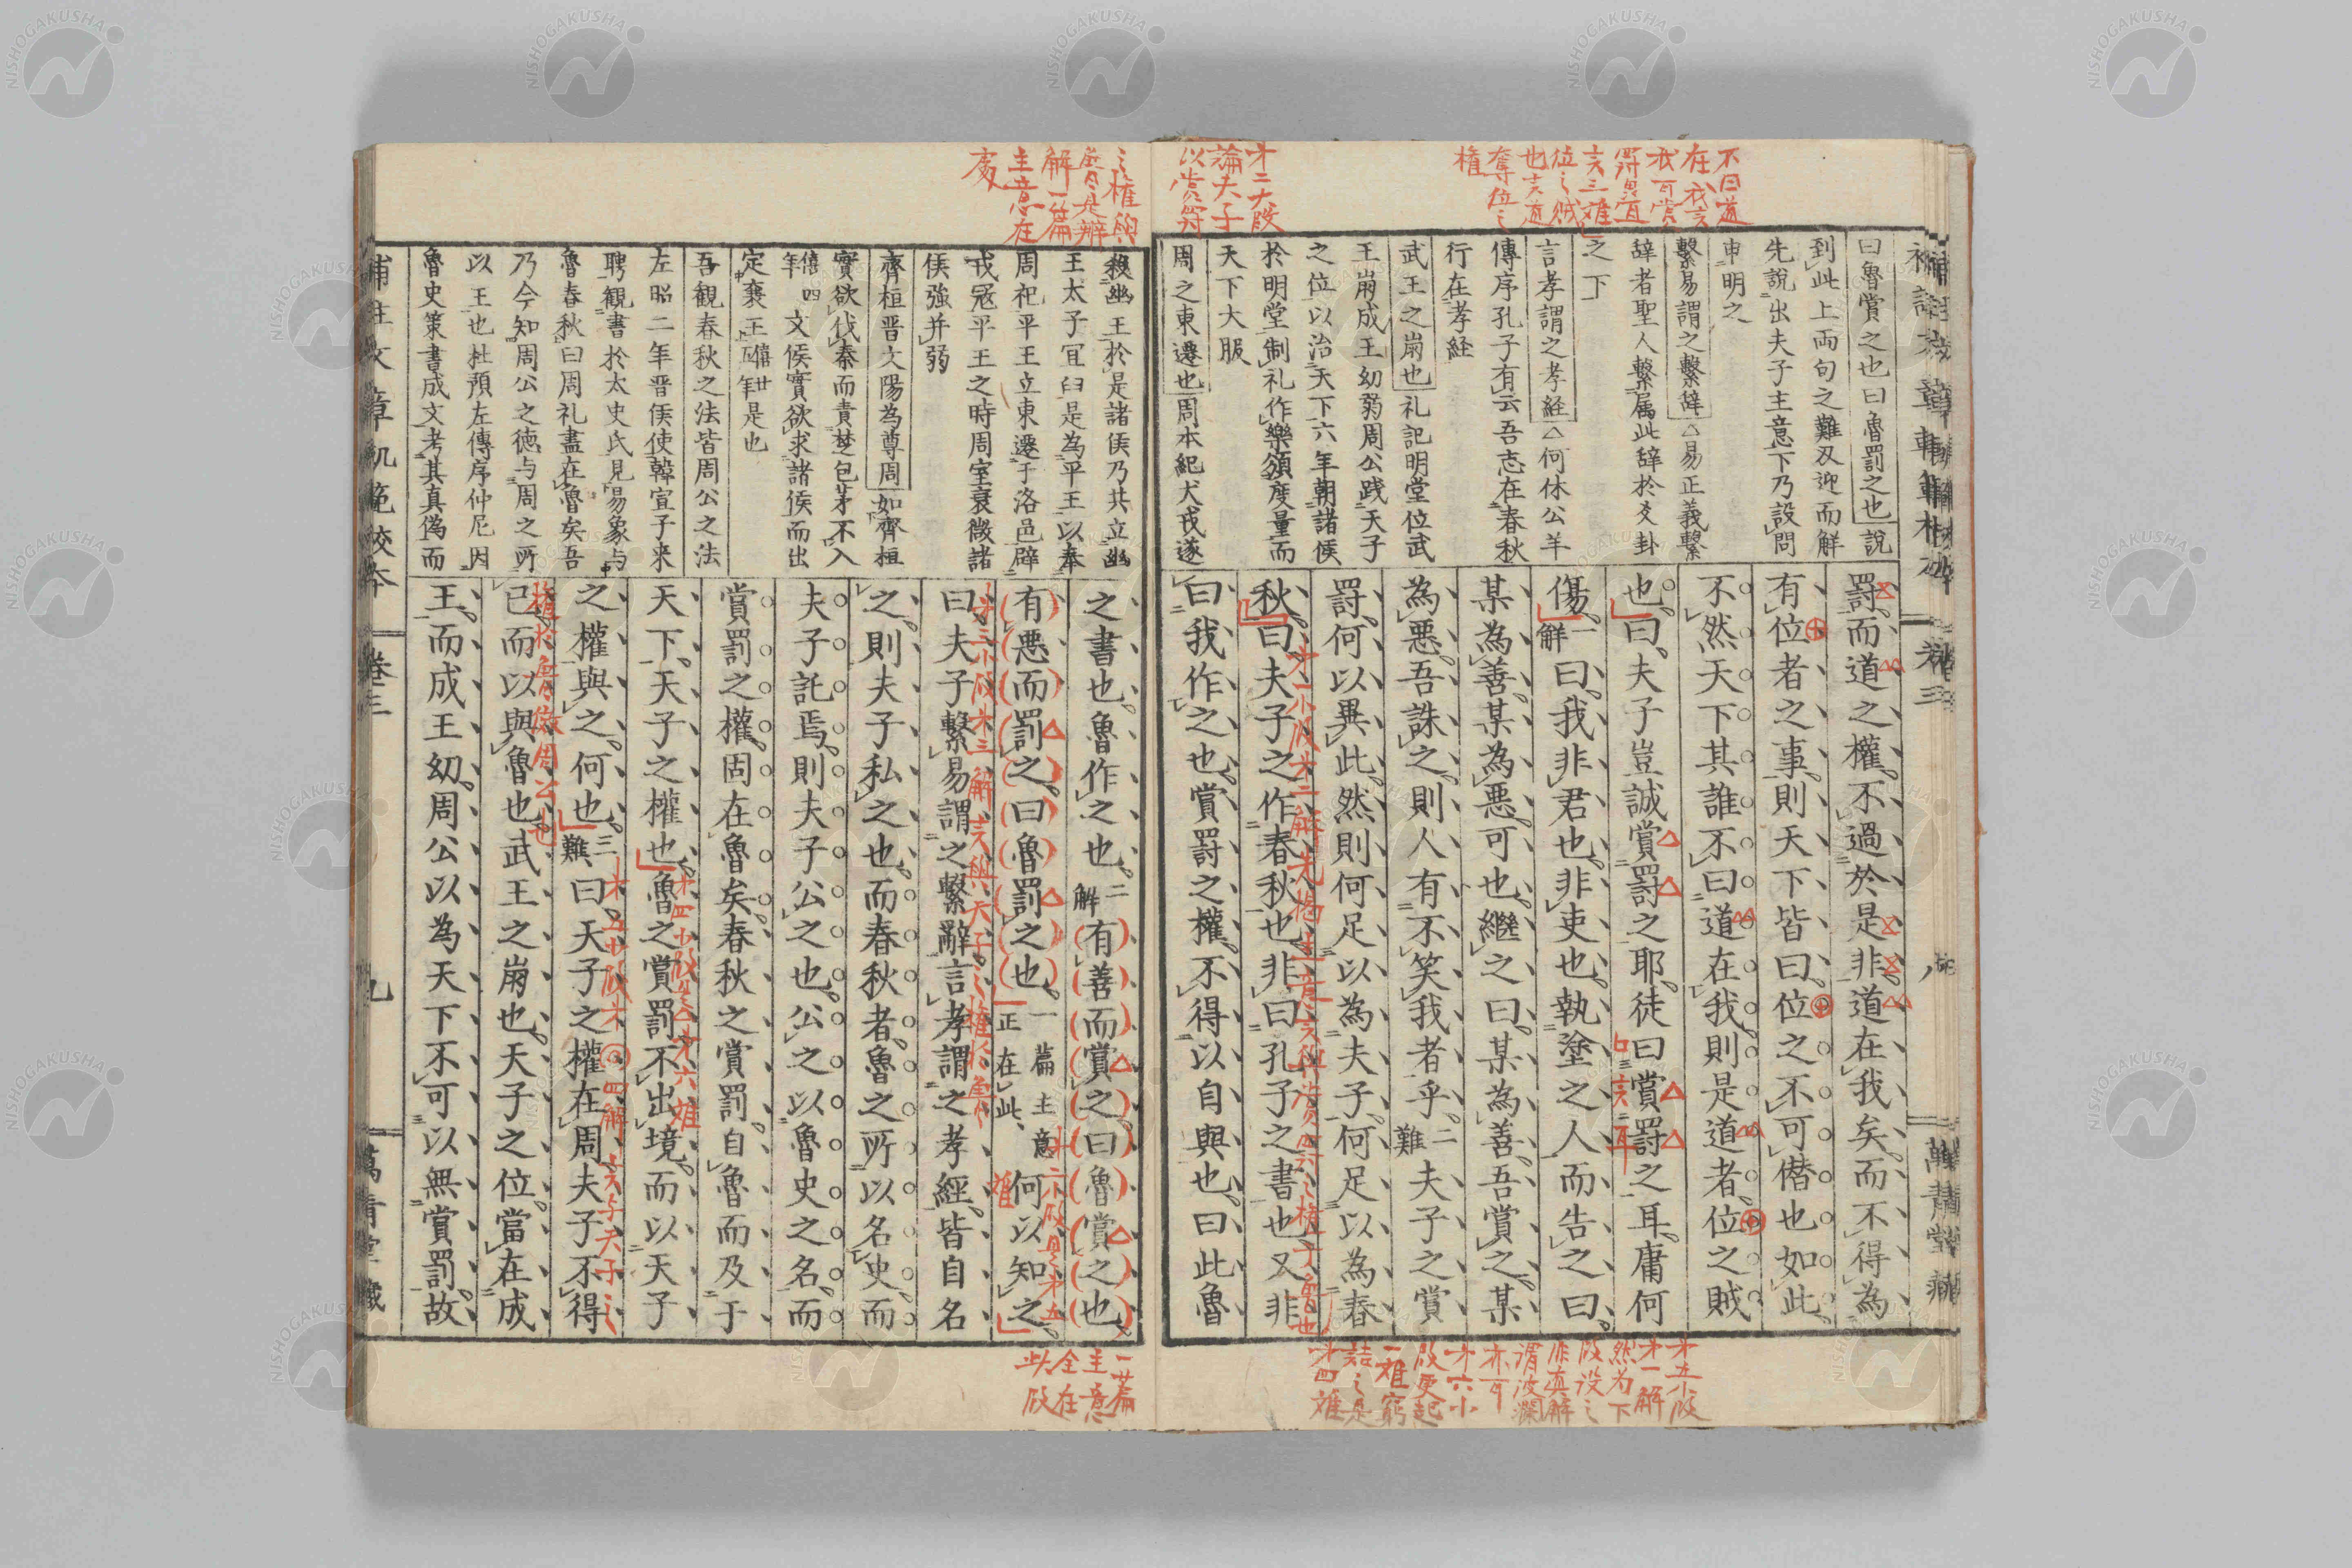 不曰道
在我言
我可賞
罰是道
位之賊
也言道
奪位之
権
才二大段
論夫子
以賞罰
曰魯賞之也曰魯罰之也説
到此上両句之難刄迎而解
先説出夫子主意下乃設問
申明之
繋易謂之繋辞△易正義繋
辞者聖人繋属此辞於爻卦
之下
言孝謂之孝経△何休公羊
傳序孔子有云吾志在春秋
行在孝経
武王之崩也礼記明堂位武
王崩成王幼弱周公践天子
之位以治天下六年朝諸侯
於明堂制礼作樂頒度量而
天下大服
周之東遷也周本紀犬戎遂
罰而道之權不過於是非道在我矣而不得為
有位者之事則天下皆曰位之不可僭也如此
不然天下其誰不曰道在我則是道者位之賊
也曰夫子豈誠賞罰之耶徒曰賞罰之耳庸何
傷一解曰我非君也非吏也執塗之人而告之曰
某為善某為惡可也繼之曰某為善吾賞之某
為惡吾誅之則人有不笑我者乎二難夫子之賞
罰何以異此然則何足以為夫子何足以為春
秋曰夫子之作春秋也非曰孔子之書也又非
曰我作之也賞罰之權不得以自與也曰此魯
才五小段
才一解
然為下
段設之
非真解
謂波瀾
亦可
才六小
段更起
一難窮
詰之是
才四難
之権與
魯是辨
解一篇
主意在
處
殺幽王於是諸侯乃共立幽
王太子宜臼是為平王以奉
周祀平王立東遷于洛邑辟
戎冦平王之時周室衰微諸
侯強并弱
齊桓晋文陽為尊周如齊桓
實欲伐秦而責楚包茅不入
僖四年文侯實欲求諸侯而出
定襄王僖廿五年是也
吾観春秋之法皆周公之法
左昭二年晋侯使韓宣子来
聘観書於太史氏見易象与
魯春秋曰周礼盡在魯矣吾
乃今知周公之徳与周之所
以王也杜預左傳序仲尼因
魯史策書成文考其真偽而
之書也魯作之也二解有善而賞之曰魯賞之也
有惡而罰之曰魯罰之也一篇主意正在此何以知之
曰夫子繋易謂之繋辭言孝謂之孝經皆自名
之則夫子私之也而春秋者魯之所以名史而
夫子託焉則夫子公之也公之以魯史之名而
賞罰之權固在魯矣春秋之賞罰自魯而及于
天下天子之權也魯之賞罰不出境而以天子
之權與之何也三難曰天子之權在周夫子不得
已而以與魯也武王之崩也天子之位當在成
王而成王幼周公以為天下不可以無賞罰故
一篇
主意
全在
此段
補註文章軌範校本
卷三
九
萬青堂藏